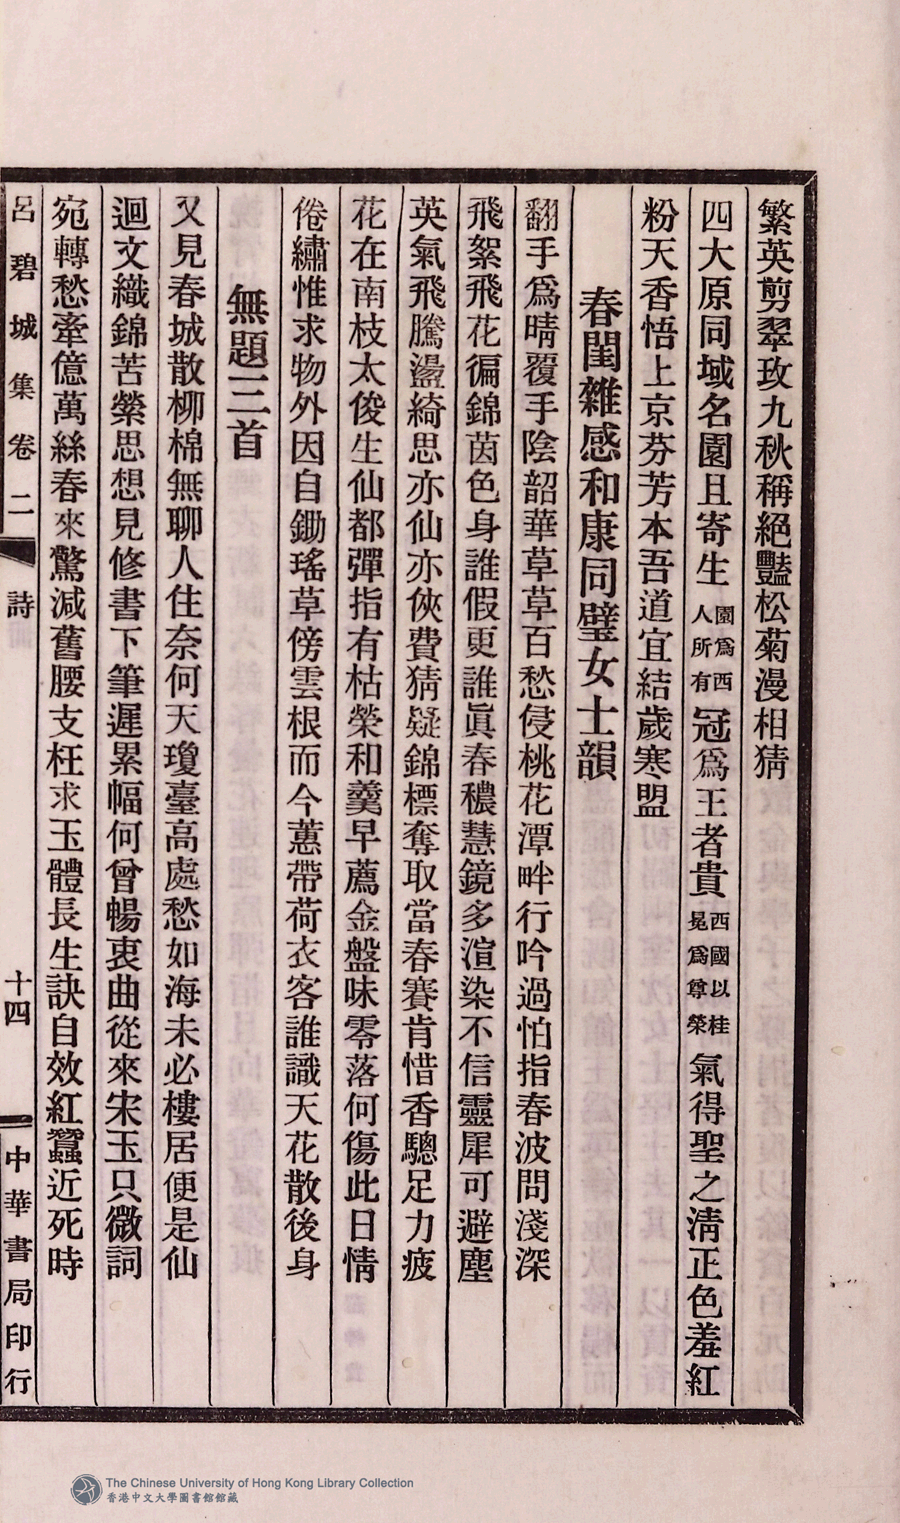 繁英剪翠玫九秋稱絕豔松菊漫相猜
四大原同域名園且寄生園爲西人所有冠爲王者貴西國以桂冕爲尊榮氣得聖之淸正色羞紅
粉天香悟上京芬芳本吾道宜結歲寒盟
春閨雜感和康同璧女士韻
翻手爲晴覆手陰韶華草草百愁侵桃花潭畔行吟過怕指春波問淺深
飛絮飛花徧錦茵色身誰假更誰眞春穠慧鏡多渲染不信靈犀可避塵
英氣飛騰盪綺思亦仙亦俠費猜疑錦標奪取當春賽肯惜香驄足力疲
花在南枝太俊生仙都彈指有枯榮和羹早薦金盤味零落何傷此日情
倦繡惟求物外因自鋤瑤草傍雲根而今蕙帶荷衣客誰識天花散後身
無題三首
又見春城散柳棉無聊人住奈何天瓊臺高處愁如海未必樓居便是仙
迴文織錦苦縈思想見修書下筆遲累幅何曾暢衷曲從來宋玉只微詞
宛轉愁牽億萬絲春來驚減舊腰支枉求玉體長生訣自效紅蠶近死時
呂碧城集卷二 詩 十四 中華書局印行
The Chinese University of Hong Kong Library Collection
香港中文大學圖書館館藏